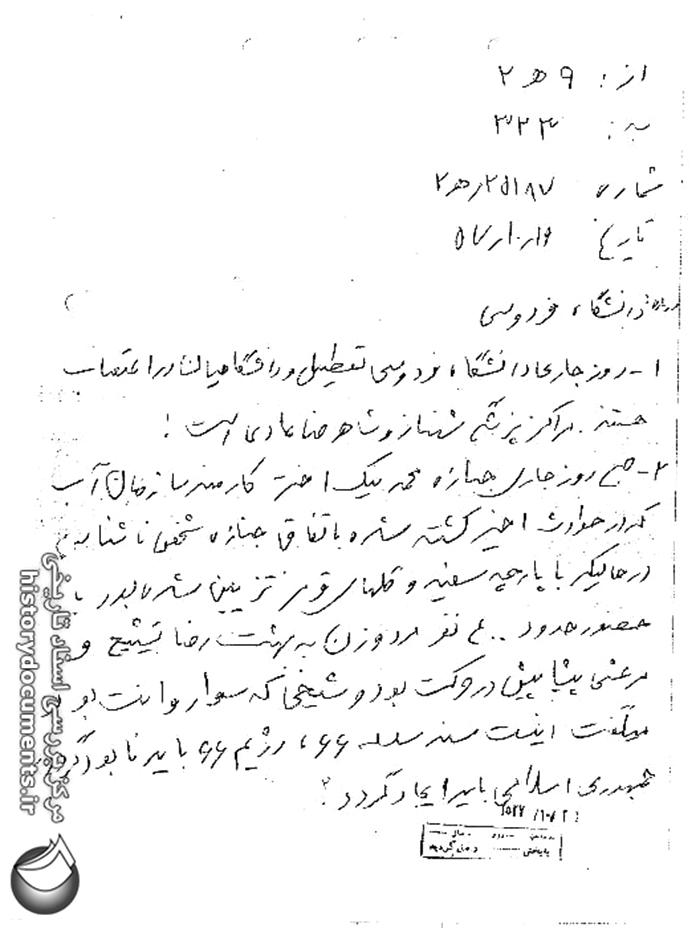 از: ۹ ھ ۲
به: ۳۲۳
شماره ۲۵۱۸۷/ھ۲
تاریخ ۱۶/۱۰/۵۷
درباره: دانشگاه فردوسی
۱- روز جاری دانشگاه فردوسی تعطیل و دانشگاهیان در اعتصاب
هستند. مراکز پزشکی شهناز و شاهرضا عادی است.
۲- صبح روز جاری جنازه محمد بیک اختر کارمند سازمان آب
که در حوادث اخیر کشته شده باتفاق جنازه شخص ناشناسی
درحالیکه با پارچه سفید و گلهای قرمز تزیین شده بود با
حضور حدود ۴۰۰ نفر مرد و زن به بهشت رضا تشییع و
مرغی پیشاپیش در حرکت بود و شیخی که سوار وانت بود
میگفت اینست سند سلسله ۶۶، رژیم ۶۶ باید نابود گردد
جمهوری اسلامی باید ایجاد گردد.
مرکز بررسی اسناد تاریخی
historydocuments.ir